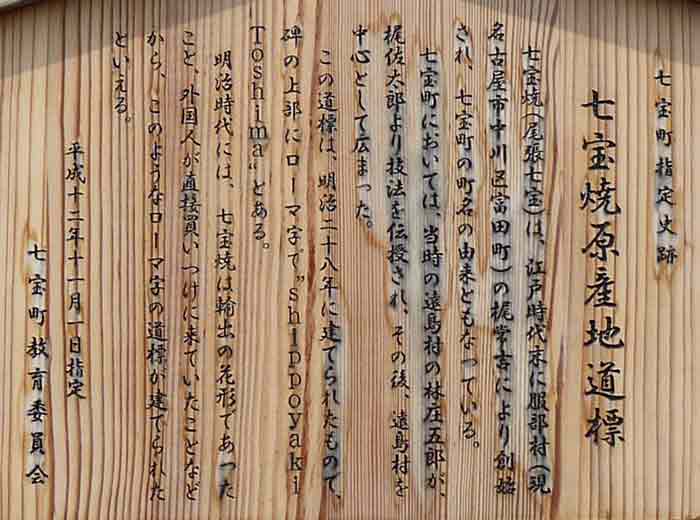 七宝町指定史跡
七宝焼原産地道標
七宝焼(尾張七宝)は、江戸時代末に服部村(現
名古屋市中川区富田町)の梶常吉により創始
され、七宝町の町名の由来ともなっている。
七宝町においては、当時の遠島村の林庄五郎が、
梶佐太郎より技法を伝授され、その後、遠島村を
中心として広まった。
この道標は、明治二十八年に建てられたもので、
碑の上部にローマ字で"shippoyaki
Toshima"とある。
明治時代には、七宝焼は輸出の花形であった
こと、外国人が直接買いつけに来ていたことなど
から、このようなローマ字の道標が建てられた
といえる。
平成十二年十一月一日指定
七宝町教育委員会